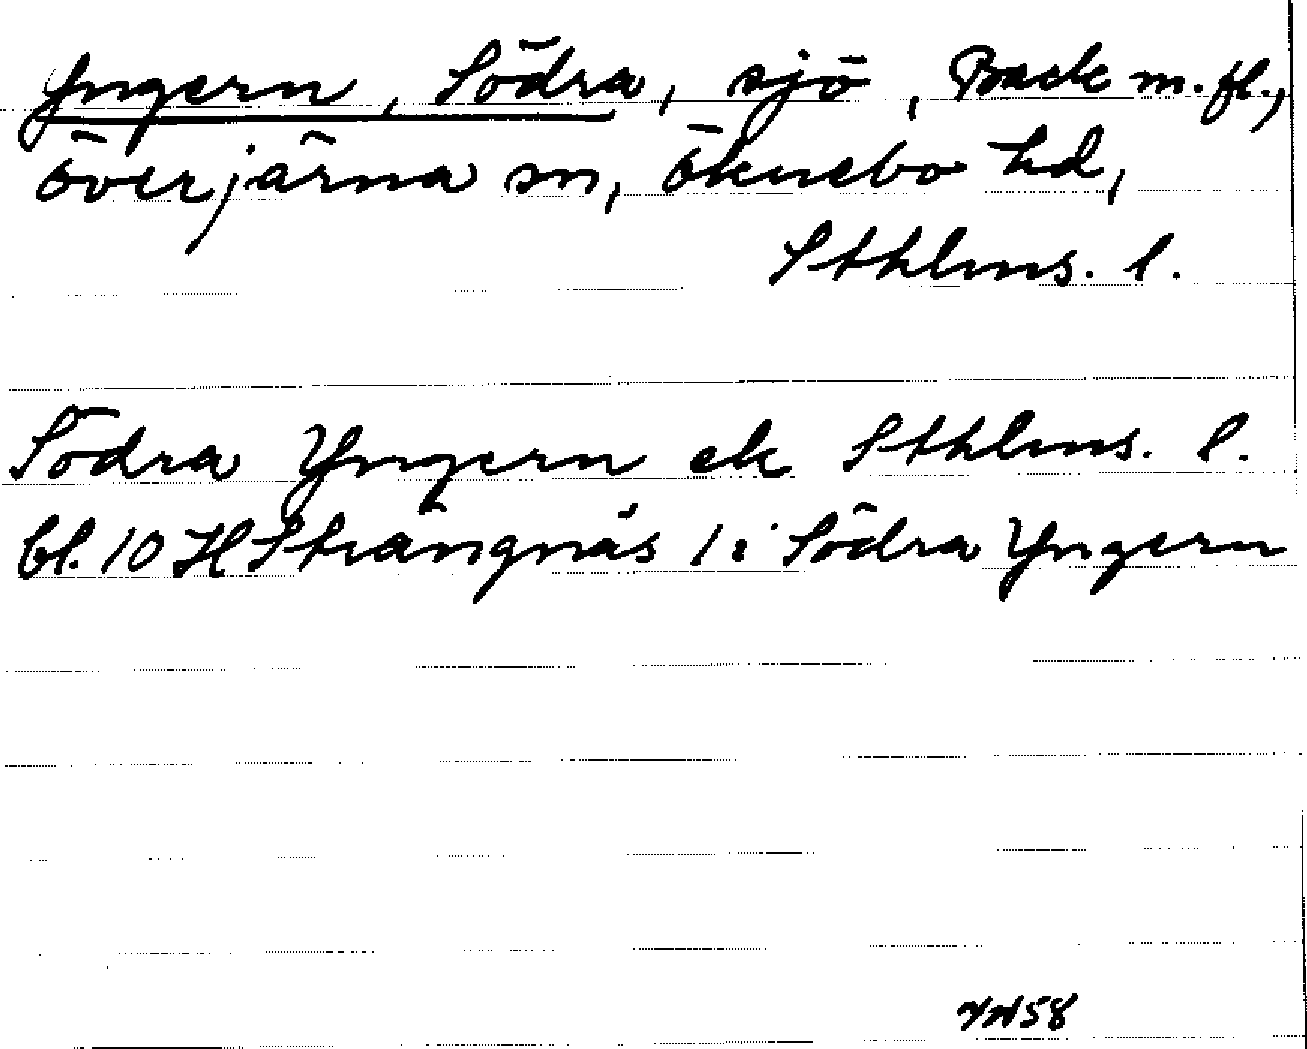 Yngern, Södra, sjö, Back m. fl.,
Överjärna sn, Öknebo hd,
Sthlms. l.
Södra Yngern ek Sthlms. l.
bl. 10 H Strängnäs 1i Södra Yngern